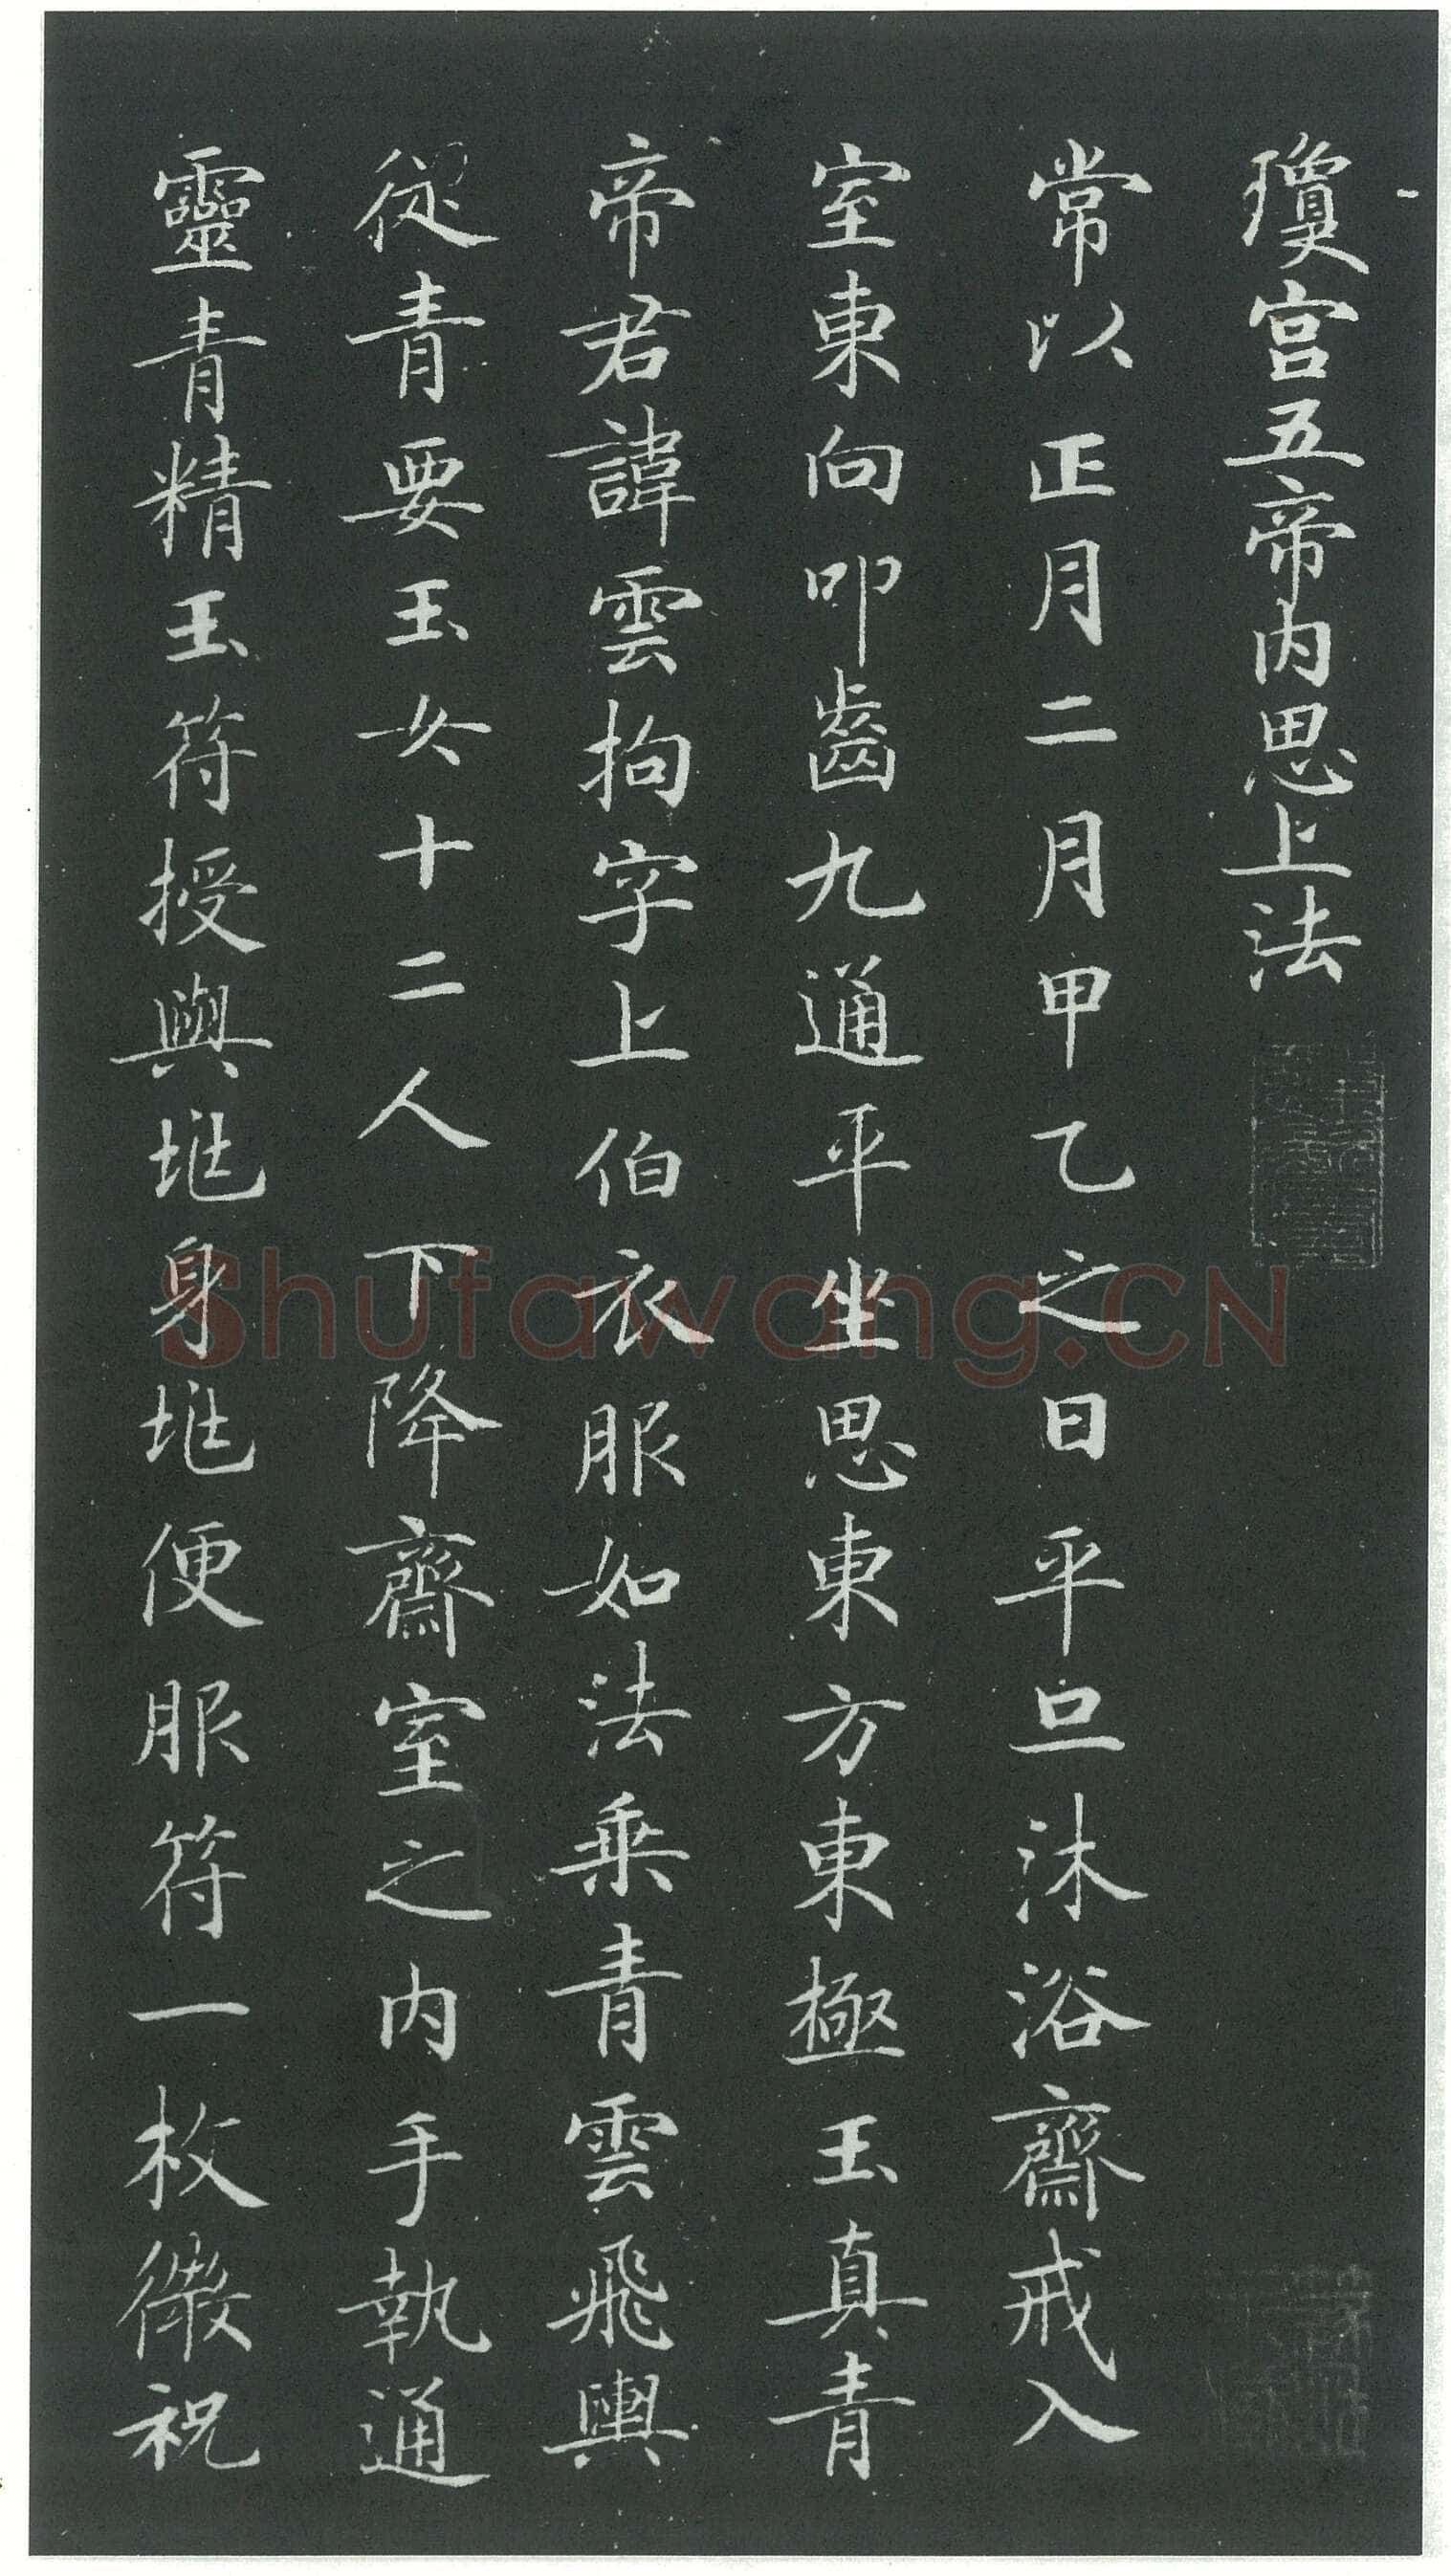 瓊宮五帝內思上法
常以正月二月甲乙之日平旦沐浴齋戒入
室東向叩齒九通平坐思東方東極玉真青
帝君諱雲拘字上伯衣服如法乘青雲飛輿
從青要玉女十二人下降齋室之內手執通
靈青精玉符授與兆身兆便服符一枚微祝
Shufawang.CN